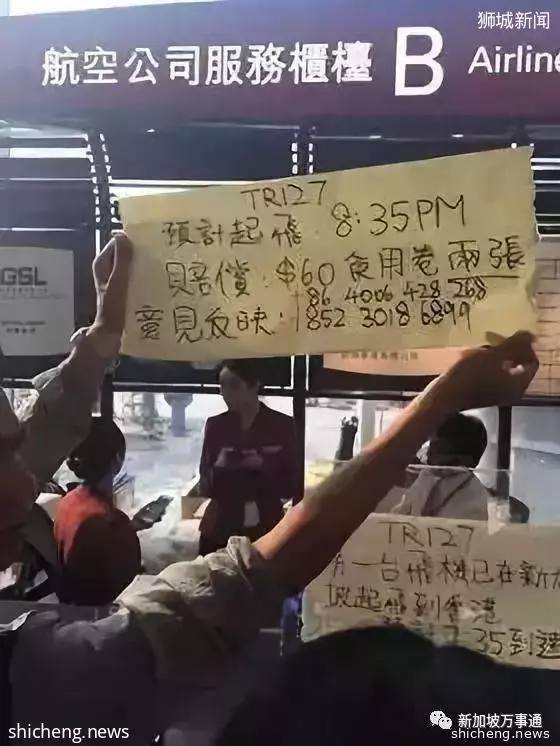 狮城新闻
航空公司服務櫃檯 B Airline
GSL
TR127
預計起飛: 8:35PM
賠償: $60 食用卷兩張
86 4006 428 268
意見反映: 852 3018 6899
TR127
一台飛機已在新
起飛到香港
35到達
shicheng.news
新加坡万事通
shicheng.news